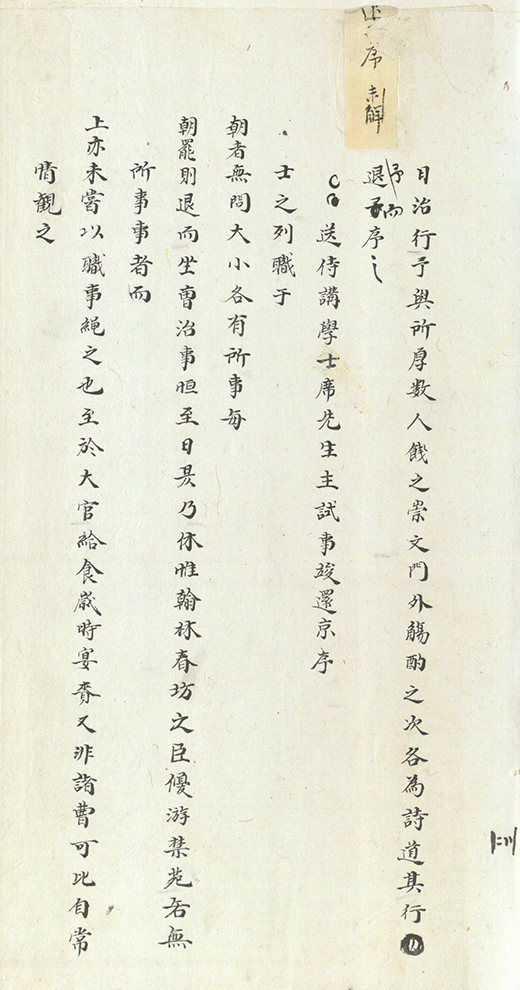 日治行予與所厚數人餞之崇文門外觴酌之次各為詩道其行
予而
退序之
送侍講學士席先生主試事竣還京序
士之列職于
朝者無問大小各有所事每
朝罷則退而坐曹治事恒至日昃乃休惟翰林春坊之臣優游禁苑若無
所事事者而
上亦未嘗以職事繩之也至於大官給食歲時宴賚又非諸曹可比自常
情觀之
序